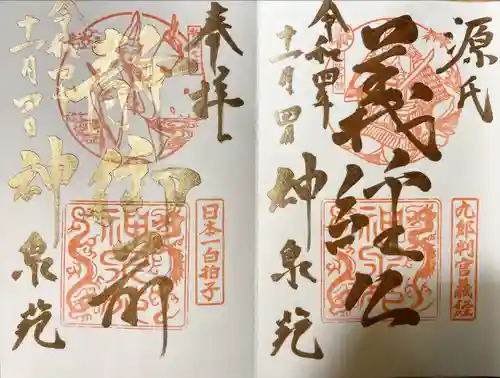 源氏
九郎判官義経
義経公
令和四年
十一月四日
神泉苑
奉拝
日本一白拍子
静御前
令和四年
十一月四日
神泉苑